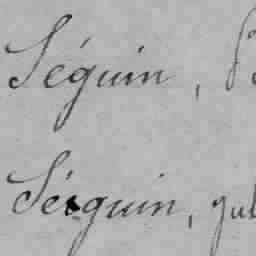 Séguin,
Séguin, Jul